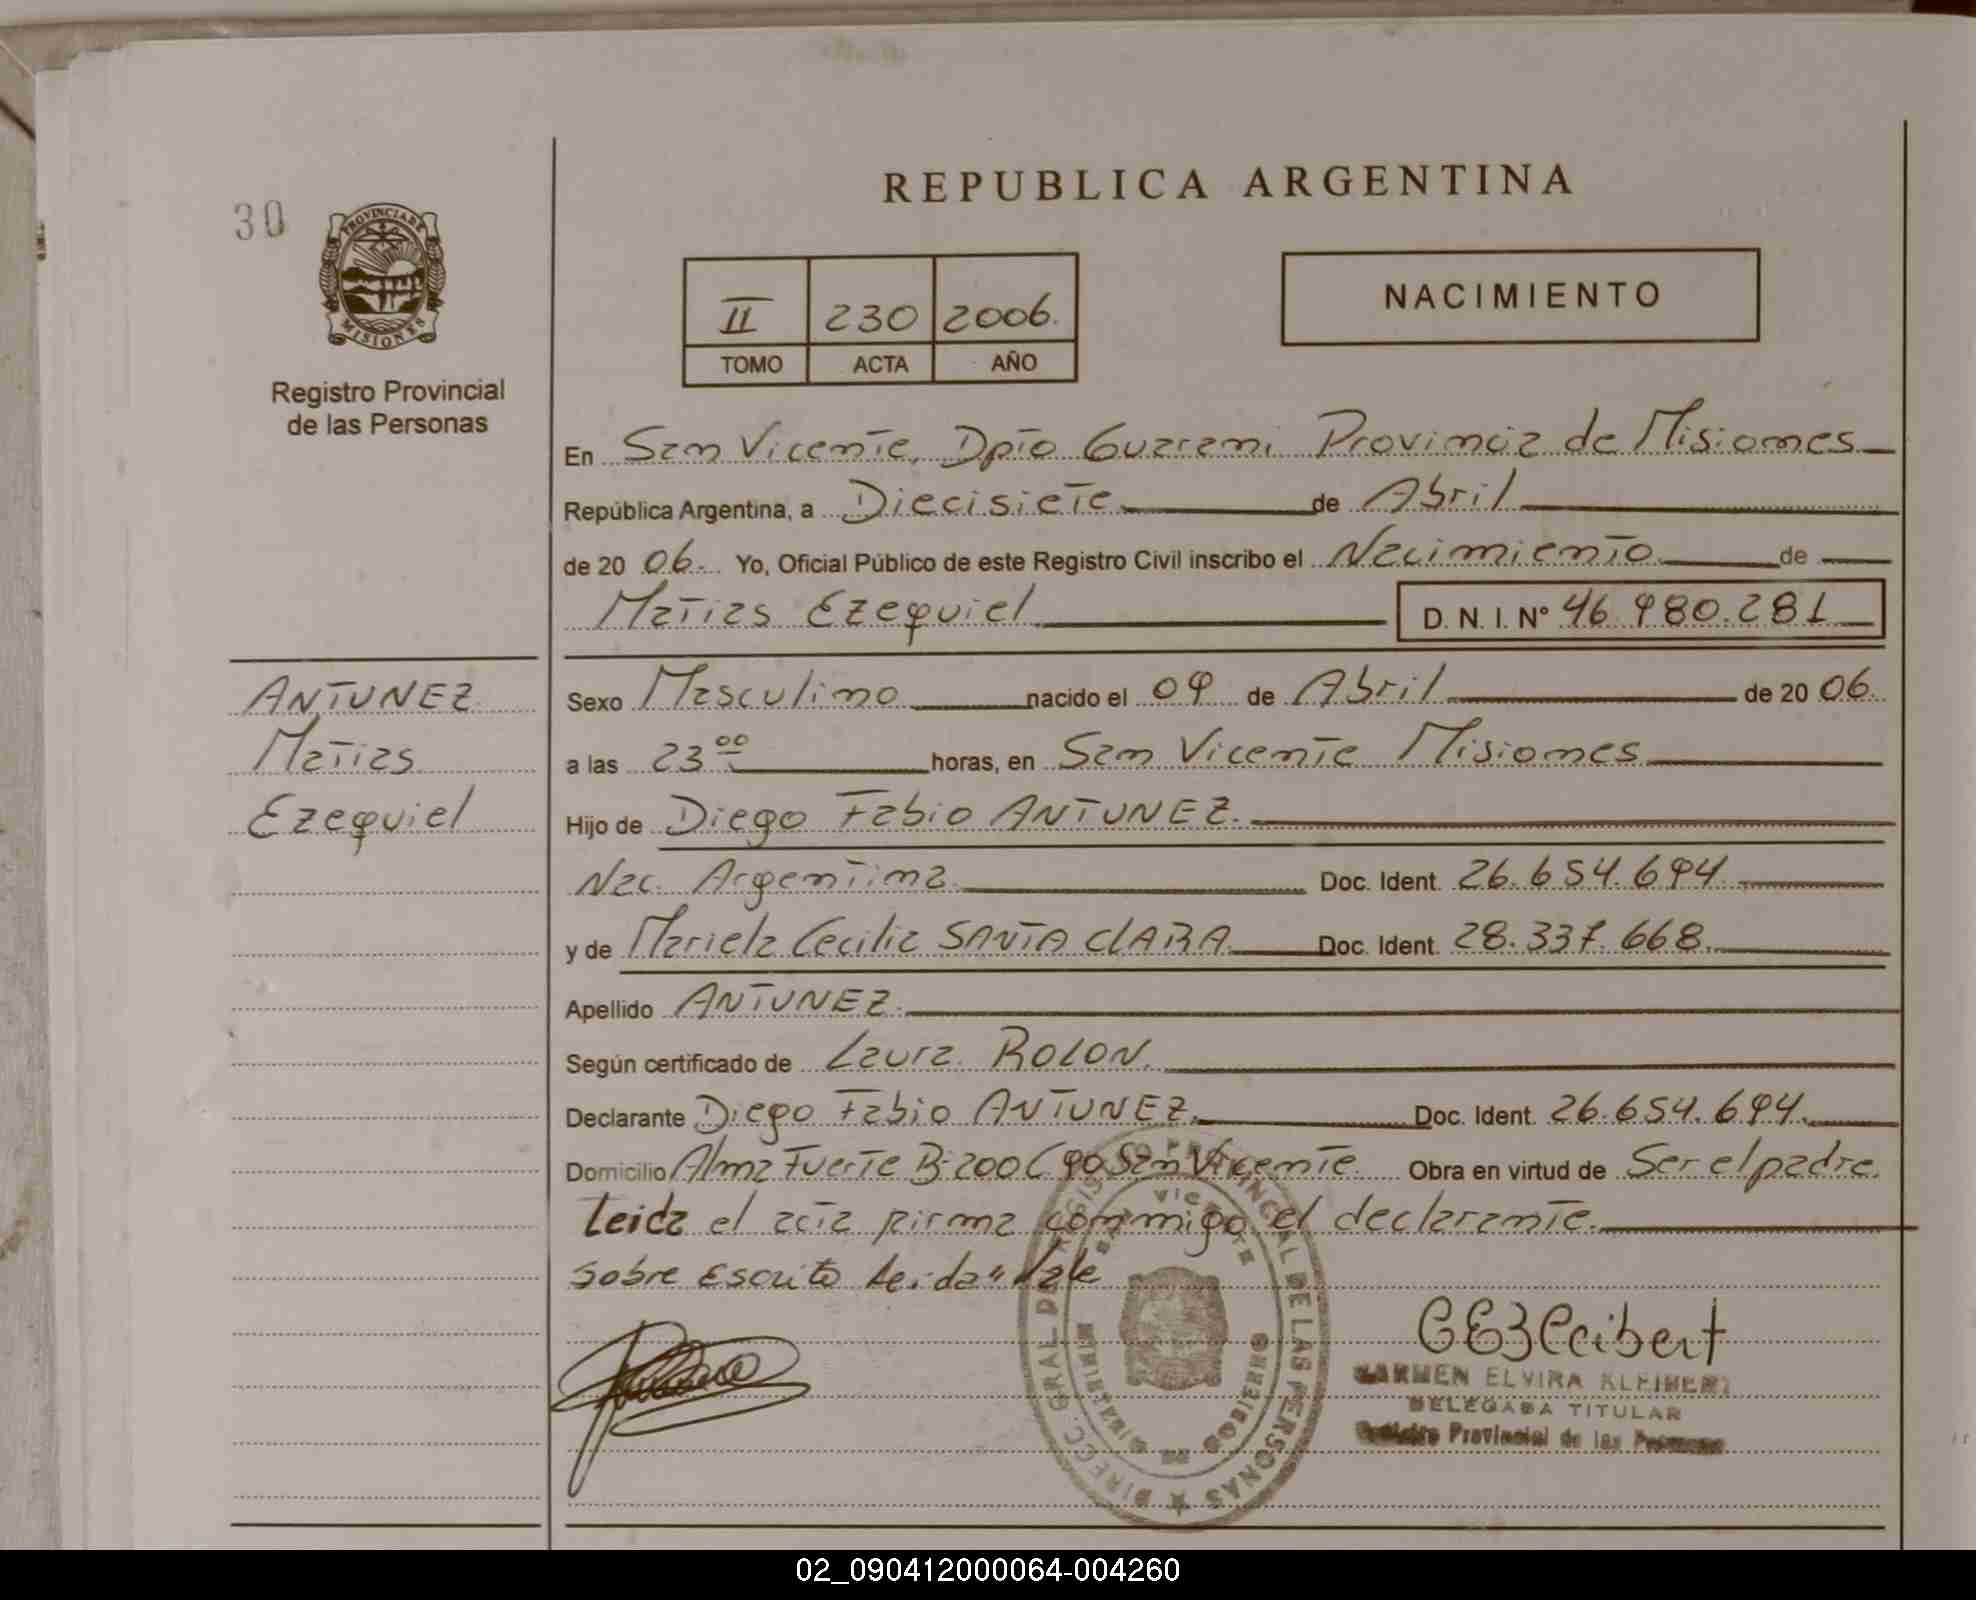 REPUBLICA ARGENTINA
30
PROVINCIA DE
MISIONES
Registro Provincial
de las Personas
II 230 2006.
TOMO ACTA AÑO
NACIMIENTO
En San Vicente, Dpto Guarani Provincia de Misiones
República Argentina, a Diecisiete de Abril
de 20 06. Yo, Oficial Público de este Registro Civil inscribo el Nacimiento de
Matias Ezequiel D. N. I. Nº 46.980.281
ANTUNEZ
Matias
Ezequiel
Sexo Masculino nacido el 09 de Abril de 20 06.
a las 23 00 horas, en San Vicente Misiones
Hijo de Diego Fabio ANTUNEZ.
Nac. Argentina Doc. Ident. 26.654.694
y de Mariela Cecilia SANTA CLARA Doc. Ident. 28.337.668.
Apellido ANTUNEZ.
Según certificado de Laura ROLON.
Declarante Diego Fabio ANTUNEZ. Doc. Ident. 26.654.694.
Domicilio Alma Fuerte B-200 C 90 San Vicente Obra en virtud de Ser el padre.
Leida el acta firma conmigo el declarante.
Sobre Escrito Leida" Vale
DIRECC. GRAL. DEL REGISTRO PROVINCIAL DE LAS PERSONAS
SAN VICENTE
MINISTERIO DE GOBIERNO
CEKleibert
CARMEN ELVIRA KLEIBERT
DELEGADA TITULAR
Registro Provincial de las Personas
02_090412000064-004260